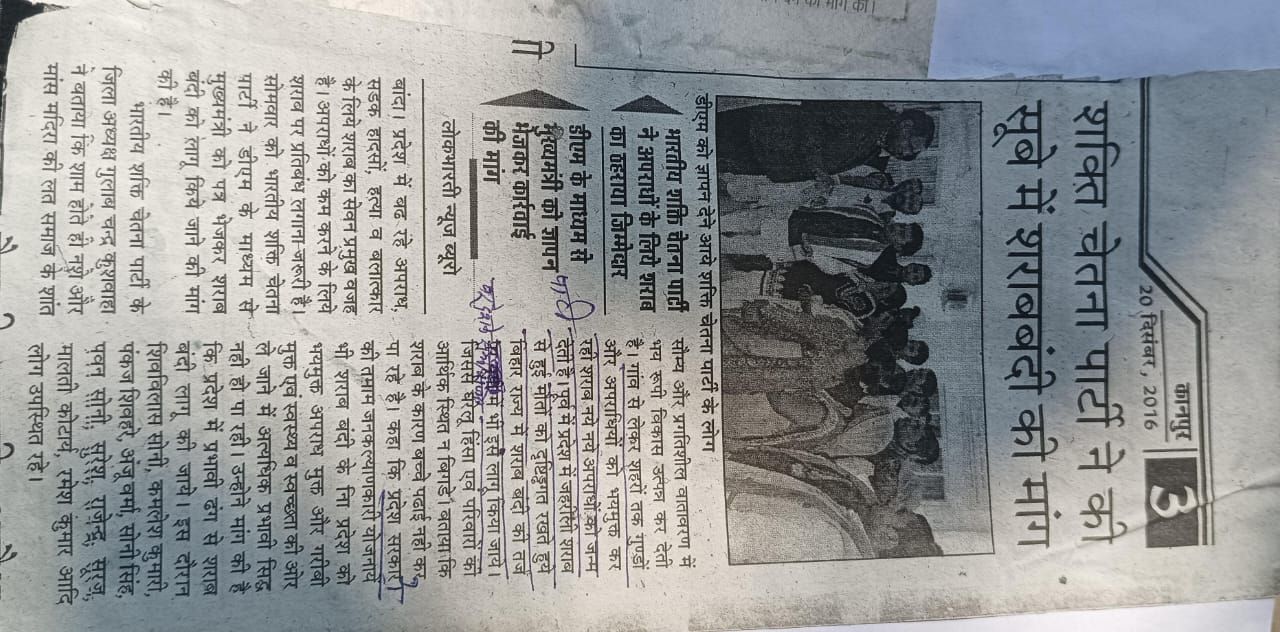 कानपुर
20 दिसंबर, 2016
3
शक्ति चेतना पार्टी ने की
सूबे में शराबबंदी की मांग
डीएम को ज्ञापन देने आये शक्ति चेतना पार्टी के लोग
भारतीय शक्ति चेतना पार्टी
ने अपराधों के लिये शराब
का ठहराया जिम्मेदार
डीएम के माध्यम से
मुख्यमंत्री को ज्ञापन
भेजकर कार्रवाई
की मांग
लोकभारती न्यूज ब्यूरो
बांदा। प्रदेश में बढ़ रहे अपराध,
सड़क हादसों, हत्या व बलात्कार
के लिये शराब का सेवन प्रमुख वजह
है। अपराधों को कम करने के लिये
शराब पर प्रतिबंध लगाना जरूरी है।
सोमवार को भारतीय शक्ति चेतना
पार्टी ने डीएम के माध्यम से
मुख्यमंत्री को पत्र भेजकर शराब
बंदी को लागू किये जाने की मांग
की है।
भारतीय शक्ति चेतना पार्टी के
जिला अध्यक्ष गुलाब चन्द्र कुशवाहा
ने बताया कि शाम होते ही नशे और
मांस मदिरा की लत समाज के शांत
सौम्य और प्रगतिशील वातावरण में
भय रूपी विकास उत्पन्न कर देती
है। गांव से लेकर शहरों तक गुण्डों
और अपराधियों को भयमुक्त कर
रही शराब नये नये अपराधों को जन्म
देती है। पूर्व में प्रदेश में जहरीली शराब
से हुई मौतों को दृष्टिगत रखते हुये
बिहार राज्य में शराब बंदी की तर्ज
में भी इसे लागू किया जाये।
जिससे घरेलू हिंसा एवं परिवारों की
आर्थिक स्थिति न बिगड़े। बताया कि
शराब के कारण बच्चे पढ़ाई नहीं कर
पा रहे है। कहा कि प्रदेश सरकार
की तमाम जनकल्याणकारी योजनायें
भी शराब बंदी के बिना प्रदेश को
भयमुक्त अपराध मुक्त और गरीबी
मुक्त एवं स्वस्थ्य व स्वच्छता की ओर
ले जाने में अत्यधिक प्रभावी सिद्ध
नहीं हो पा रही। उन्होंने मांग की है
कि प्रदेश में प्रभावी ढंग से शराब
बंदी लागू की जाये। इस दौरान
शिवविलास सोनी, कमलेश कुमारी,
पंकज शिवहरे, अंजू वर्मा, सोनी सिंह,
पवन सोनी, सुरेश, राजेन्द्र, सूरज,
मालती कोटार्य, रमेश कुमार आदि
लोग उपस्थित रहे।